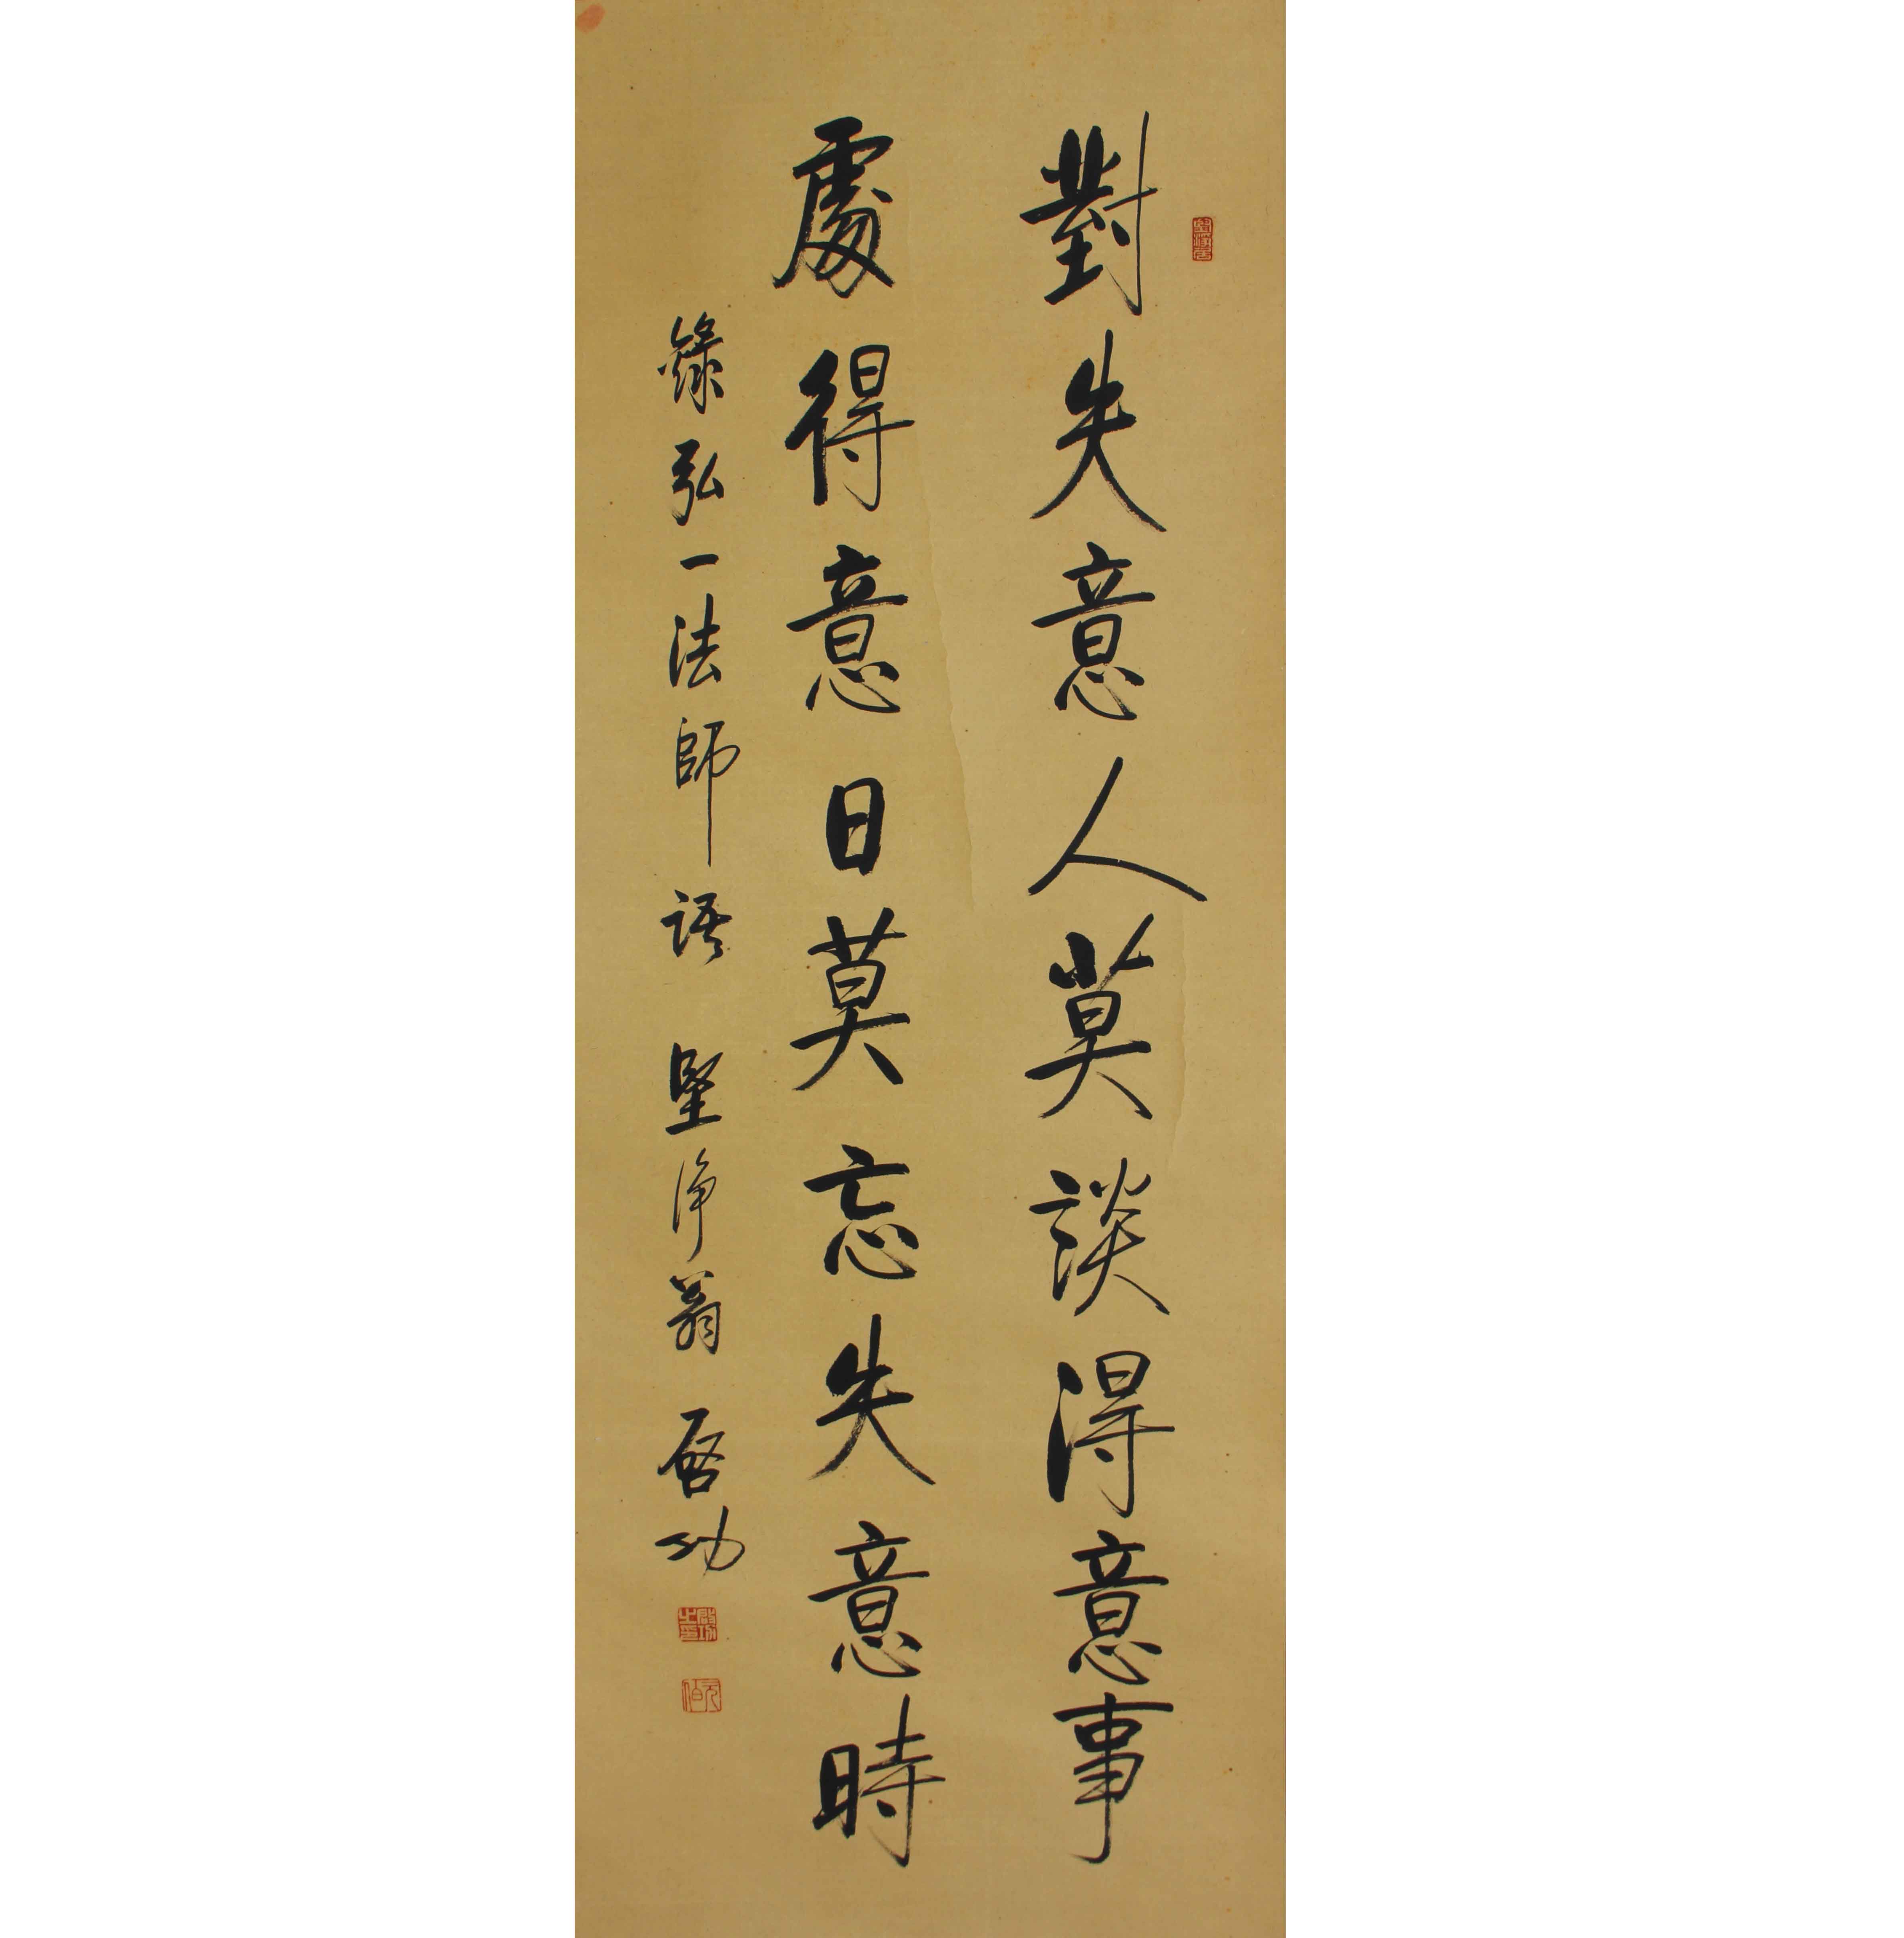 對失意人莫談得意事
處得意日莫忘失意時
錄弘一法師語 堅淨翁 啓功
啟功之印
元伯